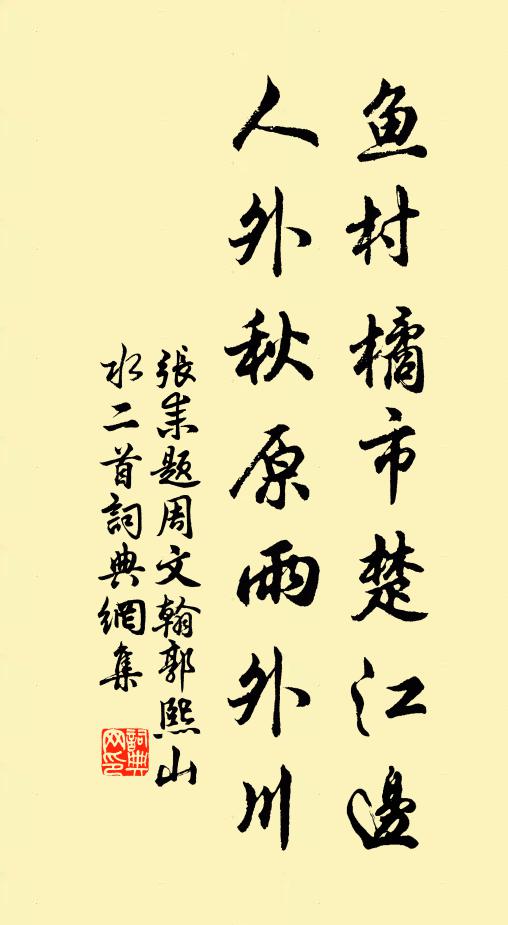 鱼村橘市楚江邊
人外秋原雨外川
張耒题周文翰郭熙山
水二首詞典網集
詞典网印